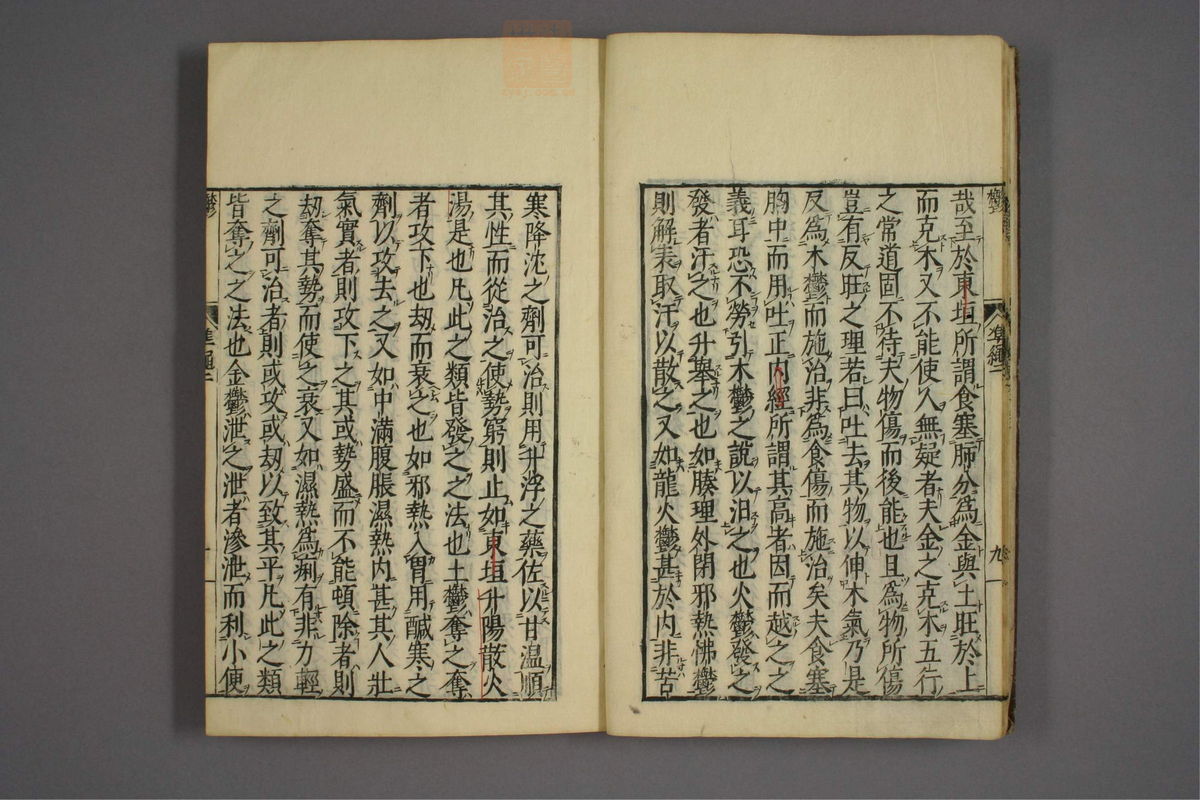 鬱
哉至於東垣所謂食塞肺分爲金與土旺於上
而克木又不能使人無疑者夫金之克木五行
之常道固不待夫物傷而後能也且爲物所傷
豈有反旺之理若曰吐去其物以伸木氣乃是
反爲木鬱而施治非爲食傷而施治矣夫食塞
胸中而用吐正内經所謂其高者因而越之之
義耳恐不勞引木鬱之說以汨之也火鬱發之
發者汗之也升舉之也如腠理外閉邪熱怫鬱
則解表取汗以散之又如龍火鬱甚於内非苦
準繩二
九
寒降沈之劑可治則用升浮之藥佐以甘温順
其性而從治之使勢窮則止如東垣升陽散火
湯是也凡此之類皆發之之法也土鬱奪之奪
者攻下也劫而衰之也如邪熱入胃用鹹寒之
劑以攻去之又如中滿腹脹濕熱内甚其人壯
氣實者則攻下之其或勢盛而不能頓除者則
劫奪其勢而使之衰又如濕熱爲痢有非力輕
之劑可治者則或攻或劫以致其平凡此之類
皆奪之之法也金鬱泄之泄者滲泄而利小便
鬱
準繩二